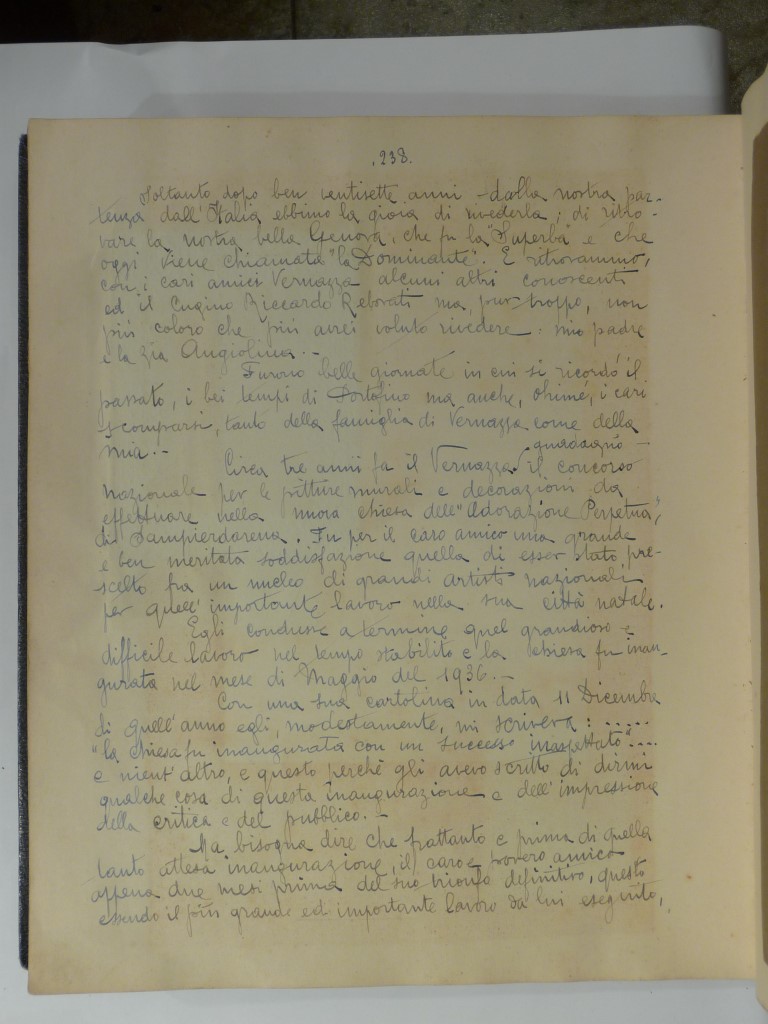 .238.
Soltanto dopo ben ventisette anni - dalla nostra par-
tenza dall'Italia ebbimo la gioia di rivederla; di ritro-
vare la nostra bella Genova, che fu la "Superba" e che
oggi viene chiamata "la Dominante". E ritrovammo,
con i cari amici Vernazza alcuni altri conoscenti
ed il Cugino Riccardo Reborati ma, pur troppo, non
più coloro che più avrei voluto rivedere: mio padre
e la zia Angiolina.-
Furono belle giornate in cui si ricordò il
passato, i bei tempi di Portofino ma anche, ohimé, i cari
scomparsi, tanto della famiglia di Vernazza come della
mia.-
guadagnò -
Circa tre anni fa il Vernazza il concorso
nazionale per le pitture murali e decorazioni da
effettuare nella nuova chiesa dell'"Adorazione Perpetua",
di Sampierdarena. Fu per il caro amico una grande
e ben meritata soddisfazione quella di esser stato pre-
scelto fra un nucleo di grandi artisti nazionali
per quell'importante lavoro nella sua città natale.
Egli condusse a termine quel grandioso e
difficile lavoro nel tempo stabilito e la chiesa fu inau-
gurata nel mese di Maggio del 1936.-
Con una sua cartolina in data 11 Dicembre
di quell'anno egli, modestamente, mi scriveva: .....
"la chiesa fu inaugurata con un successo inaspettato"....
e nient'altro, e questo perchè gli avevo scritto di dirmi
qualche cosa di questa inaugurazione e dell'impressione
della critica e del pubblico.-
Ma bisogna dire che frattanto e prima di quella
tanto attesa inaugurazione, il caro e povero amico
appena due mesi prima del suo trionfo definitivo, questo
essendo il più grande ed importante lavoro da lui eseguito,